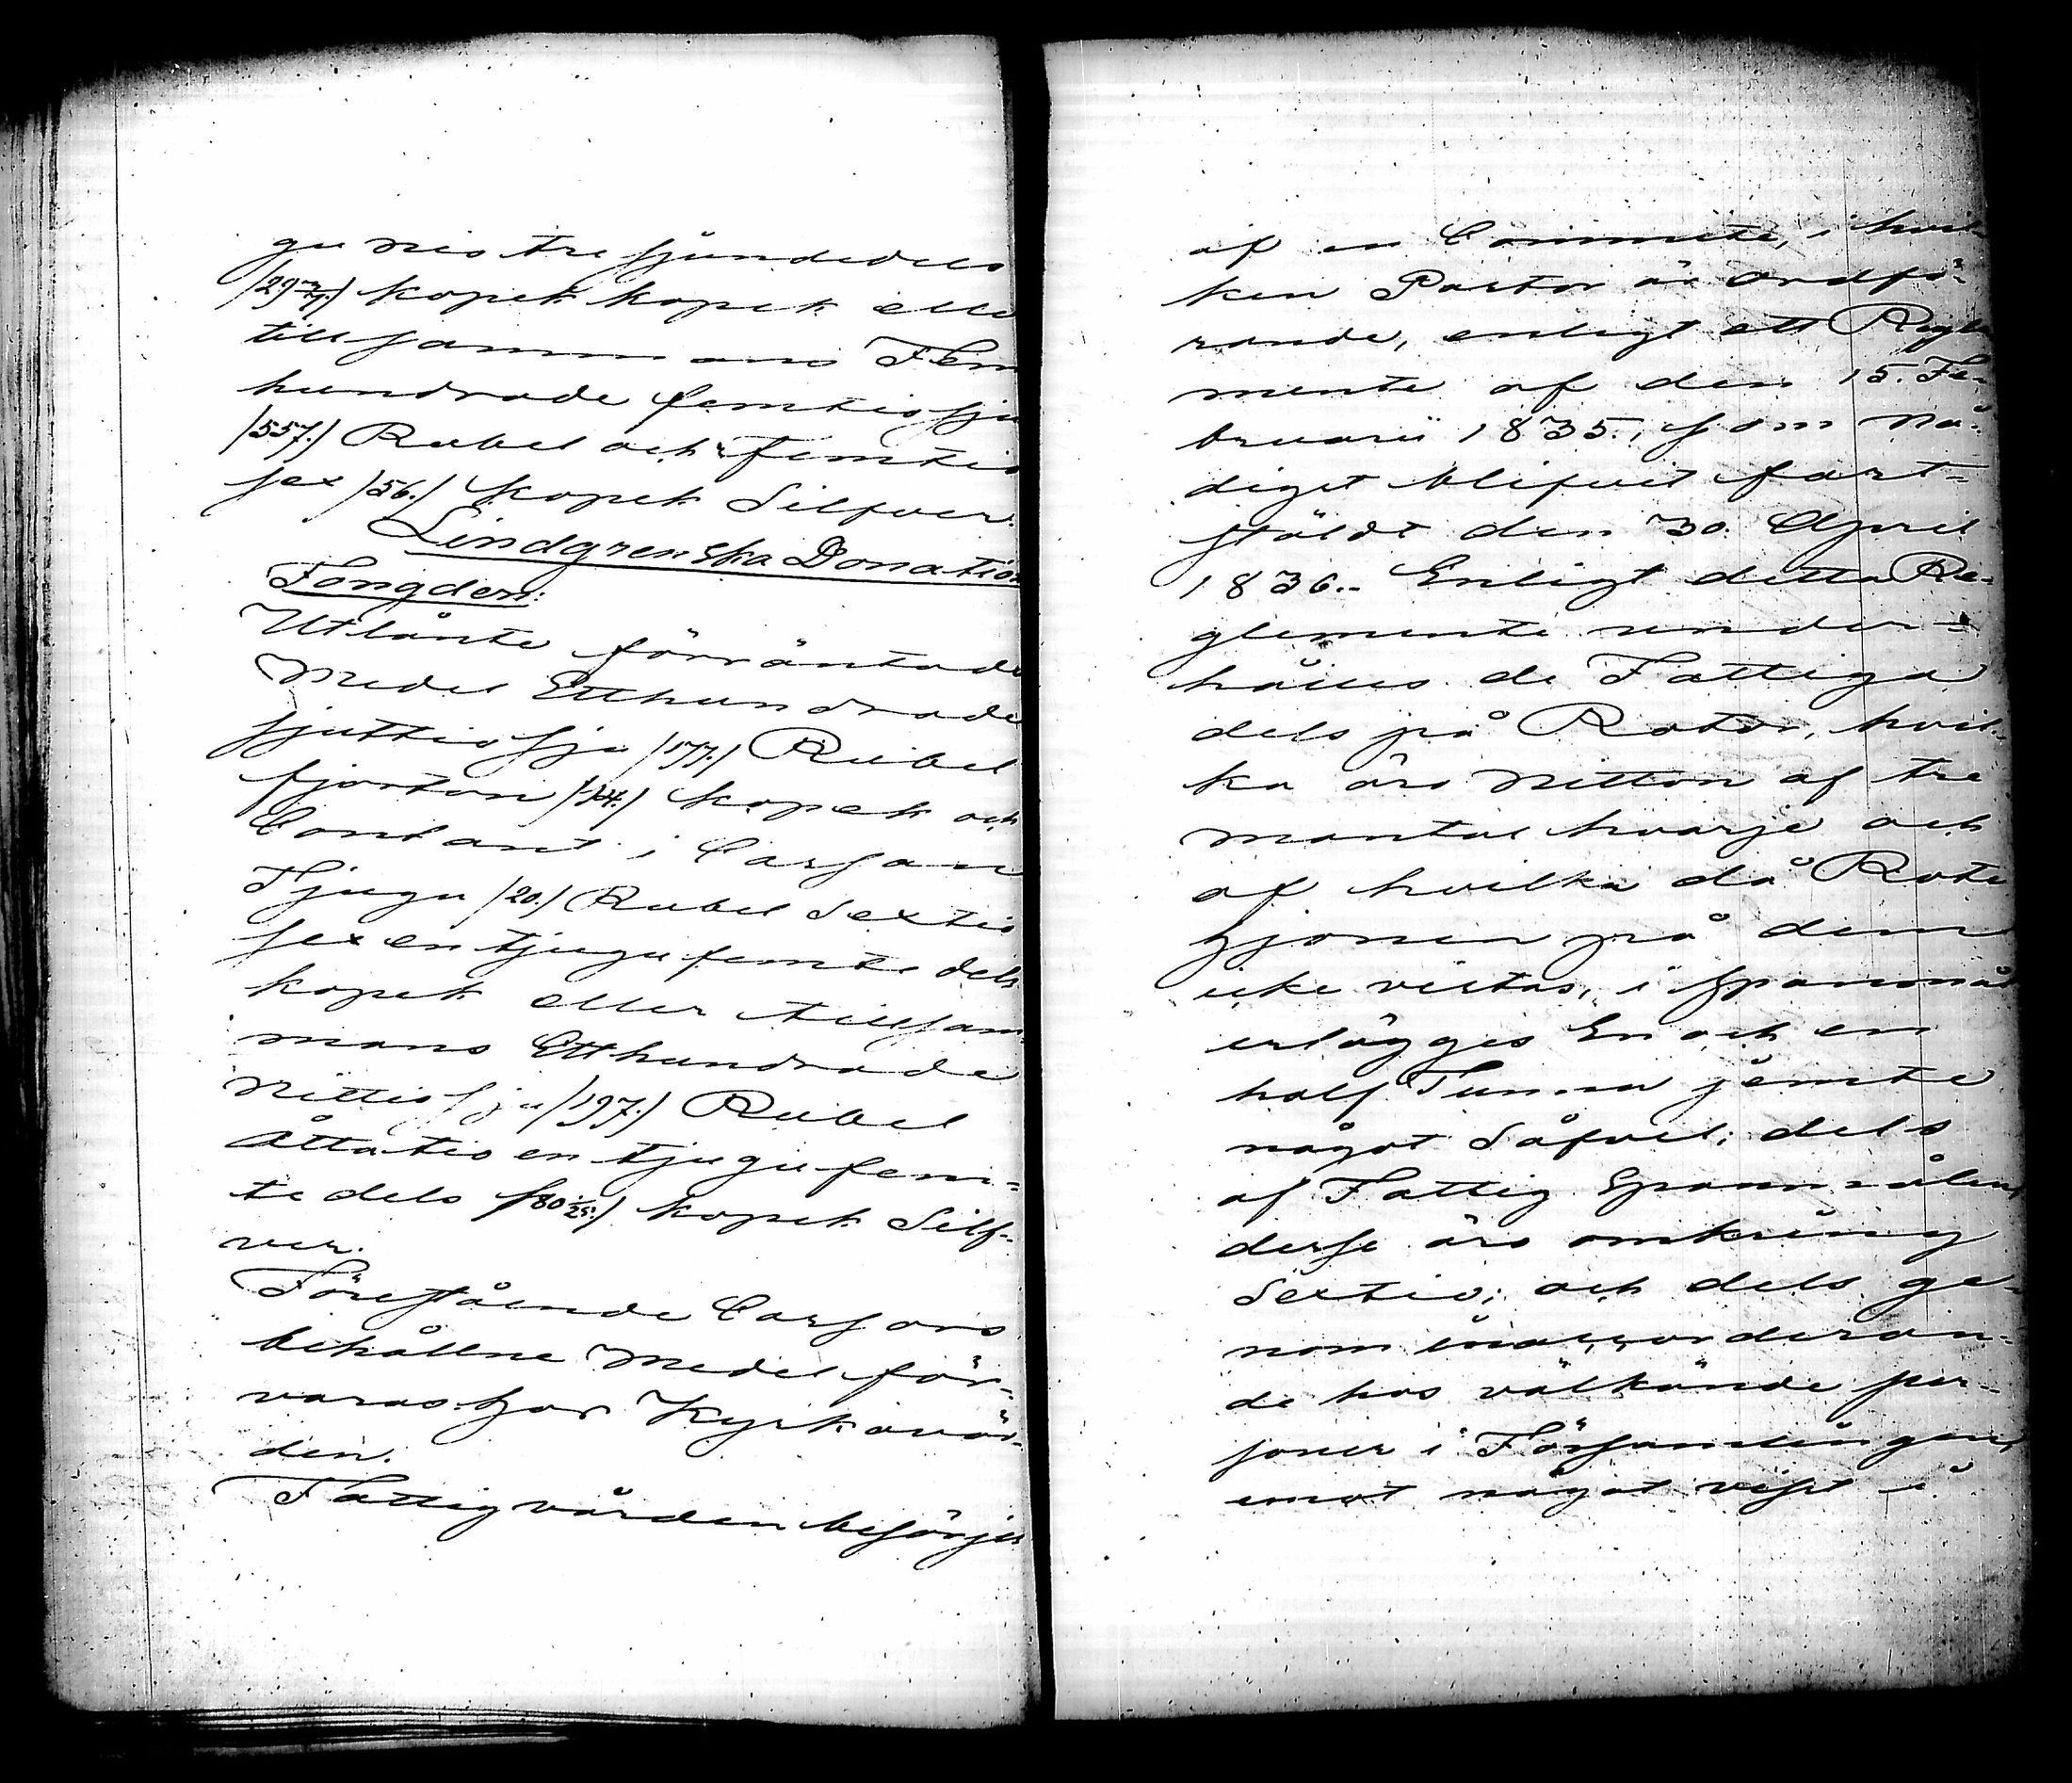 gu nio tre sjundedels
/29 3/7./ kopek kopek elle
tillsammans Fem
hundrade femtiosju
/557./ Rubel och femtio
sex /56./ kopek Silfver.
Lindgrenska Donation
Fongden:
Utlånte förräntade
Medel Etthundrade
sjuttiosju /177./ Rubel
fjorton /14./ kopek och
Contant i Cassan
Tjugu /20./ Rubel Sextio
sex en tjugufemte dels
kopek eller tillsam-
mans Etthundrade
Nittiosju /197./ Rubel
Åttatio en tjugufem-
te dels /80 1/25./ kopek Silf-
ver.
Föreståénde Cassans
behållne Medel för-
varas hos Kyrkovär-
den.
Fattigvården besörjes
af en Committé, i hvil
ken Pastor är Ordfö-
rande, enligt ett Regle
mente af den 15. Fe-
bruarii 1835., som nå-
digst blifvit fast-
stäldt den 30. April
1836.. Enligt detta Re-
glemente under-
hålles de Fattiga
dels på Rotar, hvil-
ka äro Nitton af tre
mantal hvarje och
af hvilka då Rote
hjonen på dem
icke vistas, i spannmål
erlägges En och en
half Tunna jemte
något Såfvel; dels
af Fattig Spannmålen
desse äro omkring
Sextio; och dels ge-
nom
de hos välkände per-
soner i Församlingen
emot något visst i